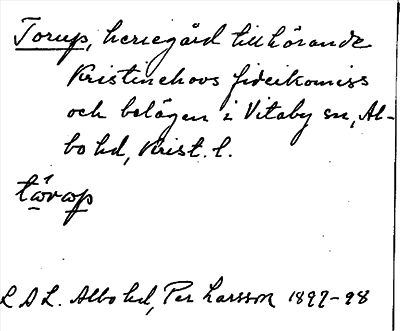 Torup, herregård tillhörande
Kristinehovs fideikomiss
och belägen i Vitaby sn, Al-
bo hd, Krist. l.
L A L. Albo hd, Per Larsson 1897-98